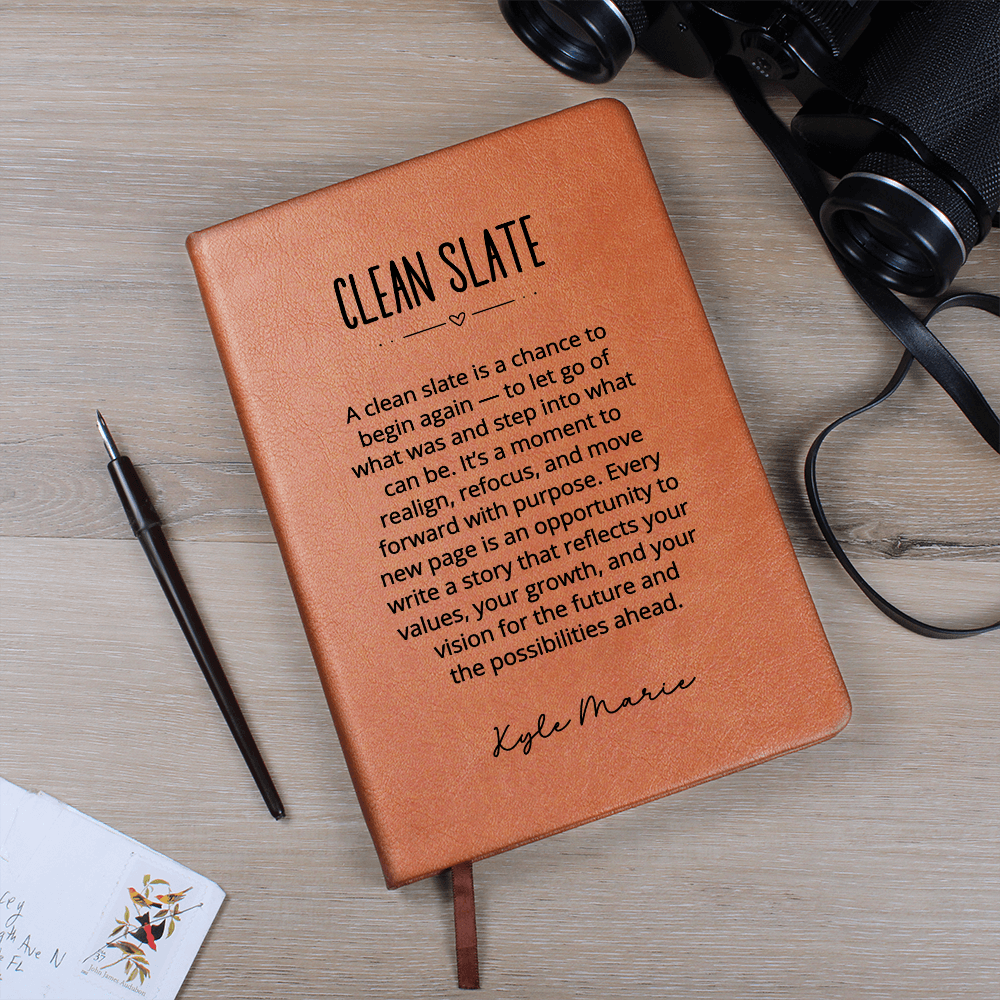 CLEAN SLATE
A clean slate is a chance to
begin again — to let go of
what was and step into what
can be. It's a moment to
realign, refocus, and move
forward with purpose. Every
new page is an opportunity to
write a story that reflects your
values, your growth, and your
vision for the future and
the possibilities ahead.
Kyle Marie
Ave N
FL
37
John James Audubon